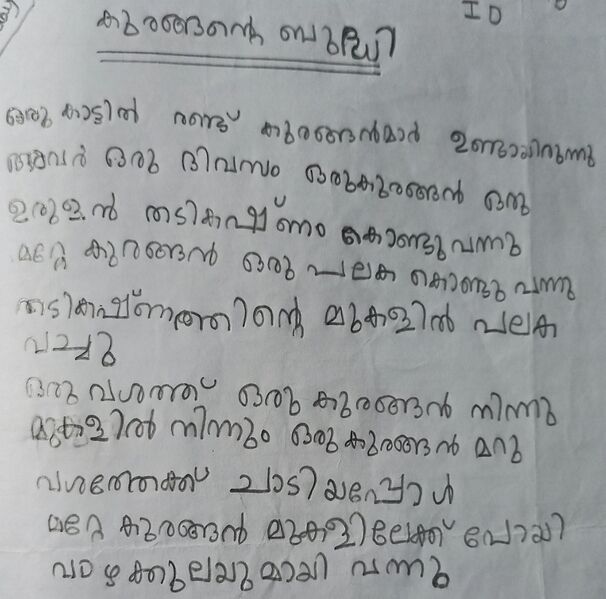 ID
കുരങ്ങന്റെ ബുദ്ധി
ഒരു കാട്ടിൽ രണ്ട് കുരങ്ങൻമാർ ഉണ്ടായിരുന്നു
അവർ ഒരു ദിവസം ഒരുകുരങ്ങൻ ഒരു
ഉരുളൻ തടികഷ്ണം കൊണ്ടുവന്നു
മറ്റേ കുരങ്ങൻ ഒരു പലക കൊണ്ടു വന്നു
തടികഷ്ണത്തിന്റെ മുകളിൽ പലക
വച്ചു
ഒരു വശത്ത് ഒരു കുരങ്ങൻ നിന്നു
മുകളിൽ നിന്നും ഒരുകുരങ്ങൻ മറു
വശത്തേക്ക് ചാടിയപ്പോൾ
മറ്റേ കുരങ്ങൻ മുകളിലേക്ക് പോയി
വാഴക്കുലയുമായി വന്നു